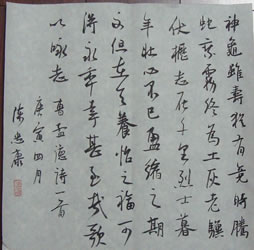 神龜雖壽猶有竟時騰
蛇乘霧終為土灰老驥
伏櫪志在千里烈士暮
年壯心不已盈縮之期
不但在天養怡之福可
得永年幸甚至哉歌
以詠志 曹孟德詩一首
庚寅四月
陳忠康